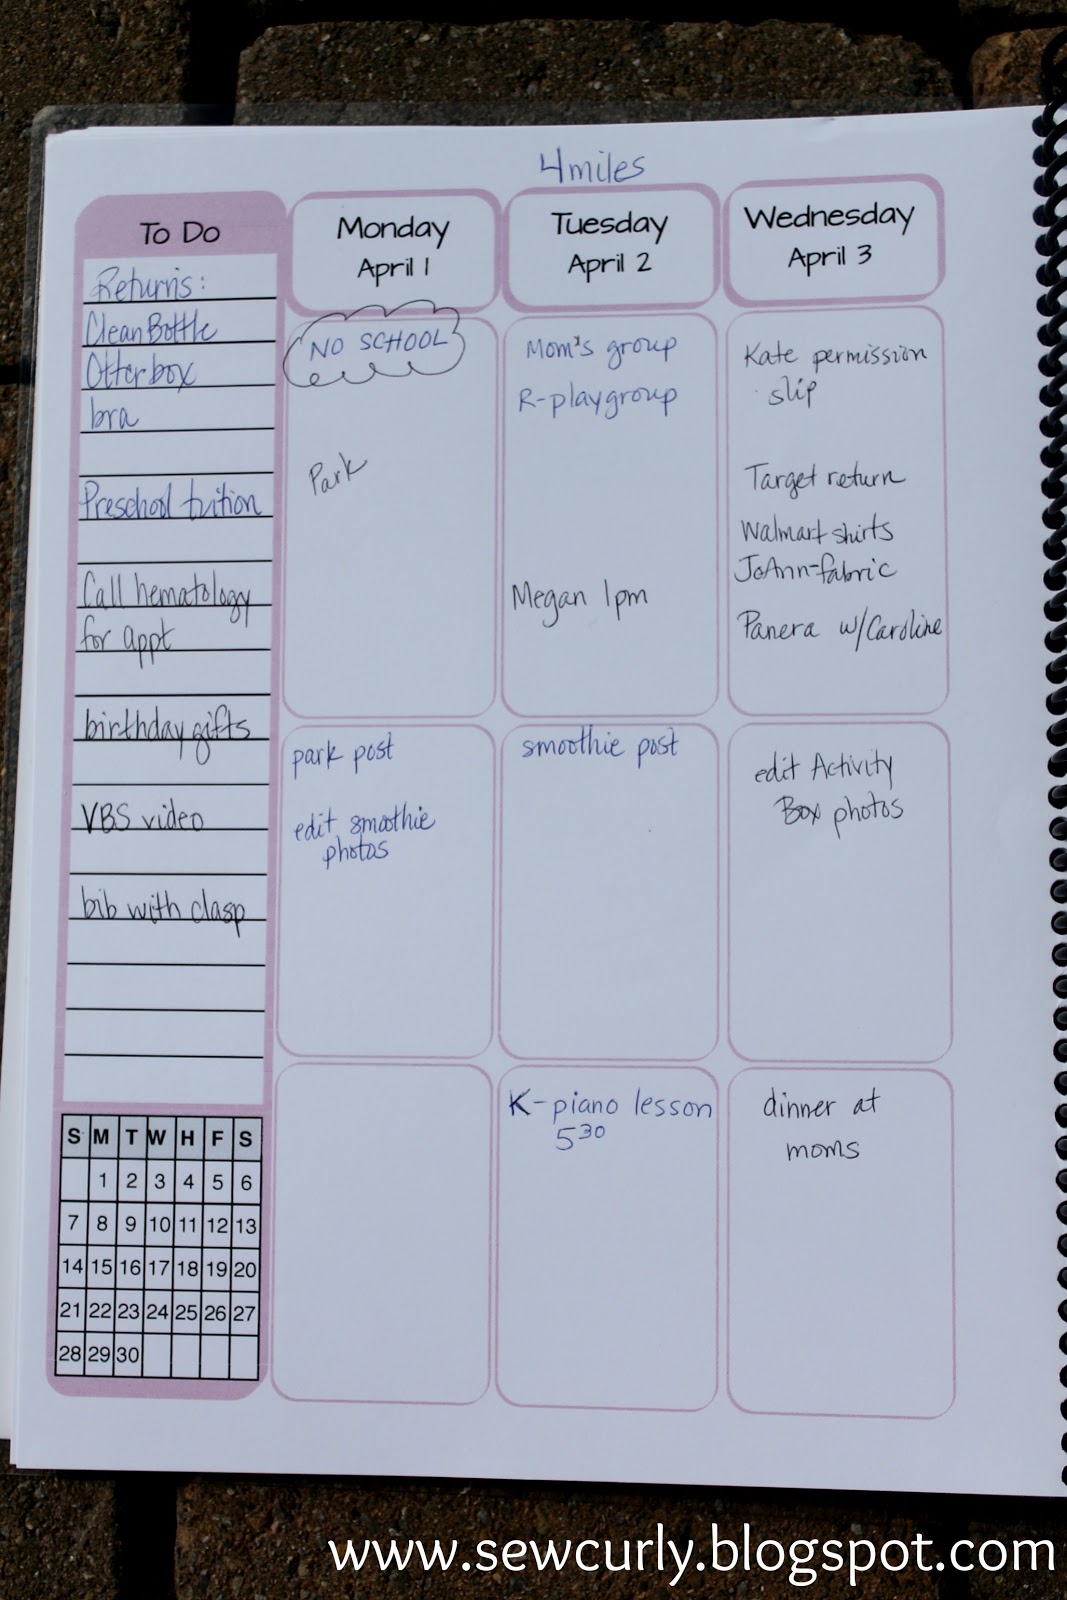 4miles
To Do
Returns:
CleanBottle
Otterbox
bra
Preschool tuition
Call hematology
for appt
birthday gifts
VBS video
bib with clasp
S M T W H F S
1 2 3 4 5 6
7 8 9 10 11 12 13
14 15 16 17 18 19 20
21 22 23 24 25 26 27
28 29 30
Monday
April 1
NO SCHOOL
Park
park post
edit smoothie
photos
Tuesday
April 2
Mom's group
R-playgroup
Megan 1pm
smoothie post
K-piano lesson
5 30
Wednesday
April 3
Kate permission
slip
Target return
Walmart shirts
JoAnn-fabric
Panera w/Caroline
edit Activity
Box photos
dinner at
moms
www.sewcurly.blogspot.com